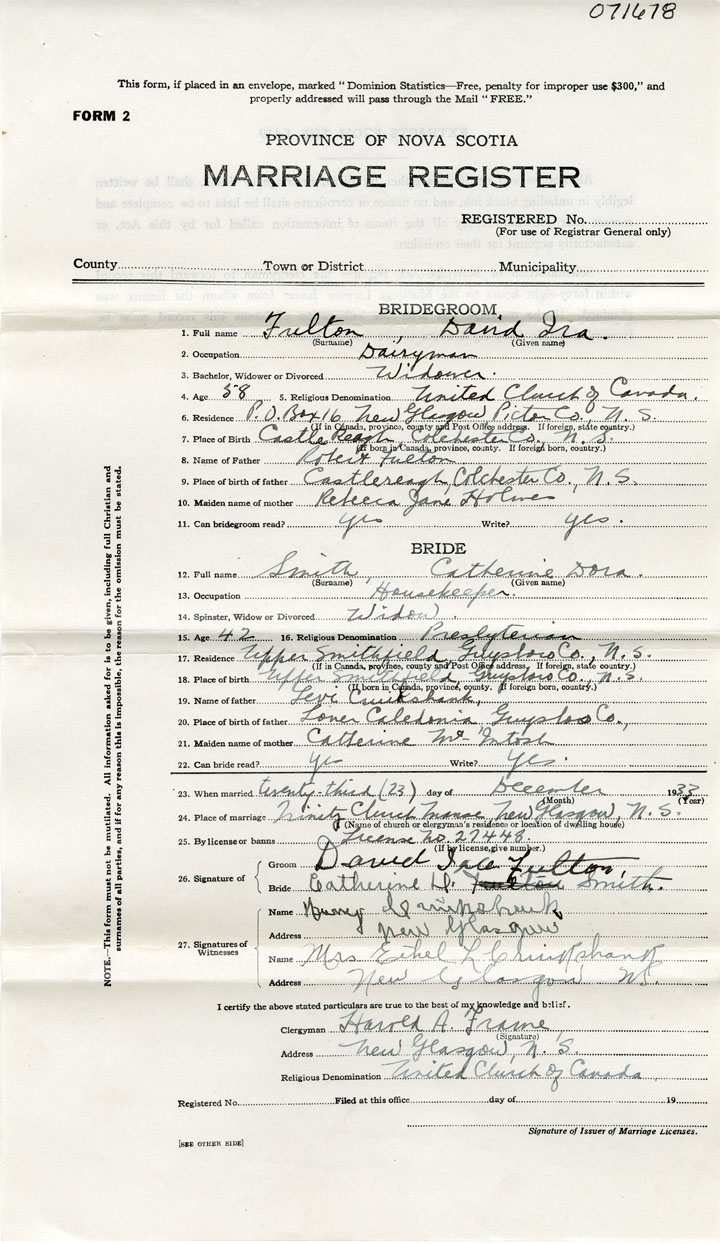 071678
This form, if placed in an envelope, marked "Dominion Statistics—Free, penalty for improper use $300," and
properly addressed will pass through the Mail "FREE."
FORM 2
PROVINCE OF NOVA SCOTIA
MARRIAGE REGISTER
REGISTERED No.
(For use of Registrar General only)
County Town or District Municipality
BRIDEGROOM
1. Full name Fulton, David Ira.
(Surname) (Given name)
2. Occupation Dairyman
3. Bachelor, Widower or Divorced Widower.
4. Age 58 5. Religious Denomination United Church of Canada.
6. Residence P.O. Box 16 New Glasgow Pictou Co., N.S.
(If in Canada, province, county and Post Office address. If foreign, state country.)
7. Place of Birth Castle Reagh, Colchester Co., N.S.
(If born in Canada, province, county. If foreign born, country.)
8. Name of Father Robert Fulton
9. Place of birth of father Castlereagh, Colchester Co., N.S.
10. Maiden name of mother Rebecca Jane Holmes
11. Can bridegroom read? yes Write? yes.
BRIDE
12. Full name Smith, Catherine Dora.
(Surname) (Given name)
13. Occupation Housekeeper.
14. Spinster, Widow or Divorced Widow.
15. Age 42 16. Religious Denomination Presbyterian
17. Residence Upper Smithfield, Guysboro Co., N.S.
(If in Canada, province, county and Post Office address. If foreign, state country.)
18. Place of birth Upper Smithfield, Guysboro Co., N.S.
(If born in Canada, province, county. If foreign born, country.)
19. Name of father Levi Cruikshank,
20. Place of birth of father Lower Caledonia Guysboro Co.,
21. Maiden name of mother Catherine McIntosh
22. Can bride read? yes Write? yes.
23. When married twenty-third (23) day of December 1933
(Month) (Year)
24. Place of marriage Trinity Church Manse, New Glasgow, N.S.
(Name of church or clergyman's residence or location of dwelling house)
25. By license or banns License no. 27448.
(If by license, give number.)
26. Signature of
Groom David Fulton,
Bride Catherine D. Fulton Smith.
27. Signatures of
Witnesses
Name
Address New Glasgow
Name Mrs Ethel L Cruikshank
Address New Glasgow NS.
I certify the above stated particulars are true to the best of my knowledge and belief.
Clergyman Harold A. Frame
(Signature)
Address New Glasgow, N.S.
Religious Denomination United Church of Canada
Registered No. Filed at this office day of 19
Signature of Issuer of Marriage Licenses.
[SEE OTHER SIDE]
NOTE.—This form must not be mutilated. All information asked for is to be given, including full Christian and
surnames of all parties, and if for any reason this is impossible, the reason for the omission must be stated.